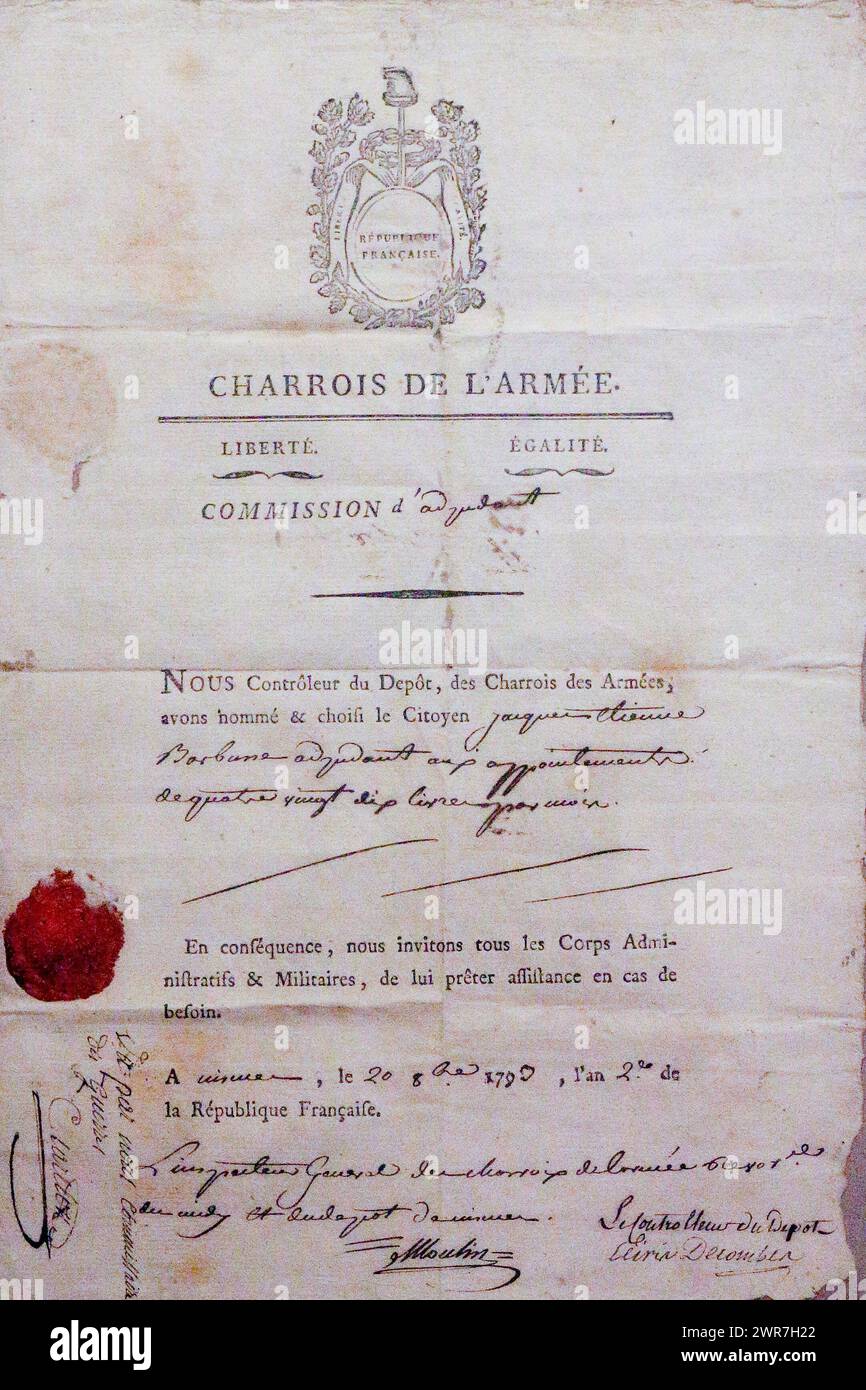 LIBERTÉ
ÉGALITÉ.
RÉPUBLIQUE
FRANÇAISE.
CHARROIS DE L'ARMÉE.
LIBERTÉ. ÉGALITÉ.
COMMISSION d'adjudant
NOUS Contrôleur du Depôt, des Charrois des Armées,
avons nommé & choiſi le Citoyen jacques Etienne
Barbusse adjudant aux appointements
de quatre vingt dix livres par mois.
En conſéquence, nous invitons tous les Corps Admi-
niſtratifs & Militaires, de lui prêter aſſiſtance en cas de
beſoin.
A nismes, le 20 8bre 1793, l'an 2e de
la République Françaiſe.
L'inspecteur General des charrois de l'armée
du midy et du depot de nismes. Le Controlleur du Depot
Moulin
Vu par nous Commissaire
des Guerres
alamy
Image ID: 2WR7H22
www.alamy.com